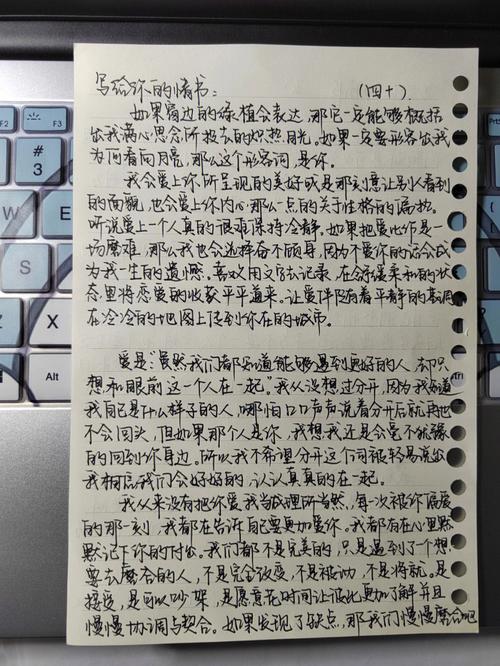 写给你的情书：
（四十）
如果窗边的绿植会表达，那它一定能够概括
出我满心思念所投去的炽热目光。如果一定要形容出我
为何看向月亮，那么这个形容词，是你。
我会爱上你所呈现的美好或是刻意让别人看到
的面貌，也会爱上你内心那么一点的关于性格的偏执。
听说爱上一个人真的很难保持冷静。如果把爱比作是一
场磨难，那么我也会选择奋不顾身，因为不爱你的话会成
为我一生的遗憾。喜欢用文字去记录，在舒缓柔和的状
态里将恋爱的收获平平道来。让爱伴随着平静的基调
在冷冷的地图上传到你在的城市。
爱是：“虽然我们都知道能够遇到更好的人，却只
想和眼前这一个人在一起。”我从没想过分开，因为我知道
我自己是什么样子的人，哪怕口口声声说着分开后就再也
不会回头，但如果那个人是你，我想我还是会毫不犹豫
的回到你身边。所以我不希望分开这个词被轻易说出
我相信我们会好好的，认认真真的在一起。
我从来没有把你爱我当成理所当然，每一次被你偏爱
的那一刻，我都在告诉自己要更加爱你。我都有在心里默
默记下你的付出。我们都不是完美的，只是遇到了个想
要去磨合的人，不是完全改变，不是被动，不是将就。是
接受，是可以吵架，是愿意花时间让彼此更加了解并且
慢慢协调与契合。如果发现了缺点，那我们慢慢磨合吧
F2
F3
#
3